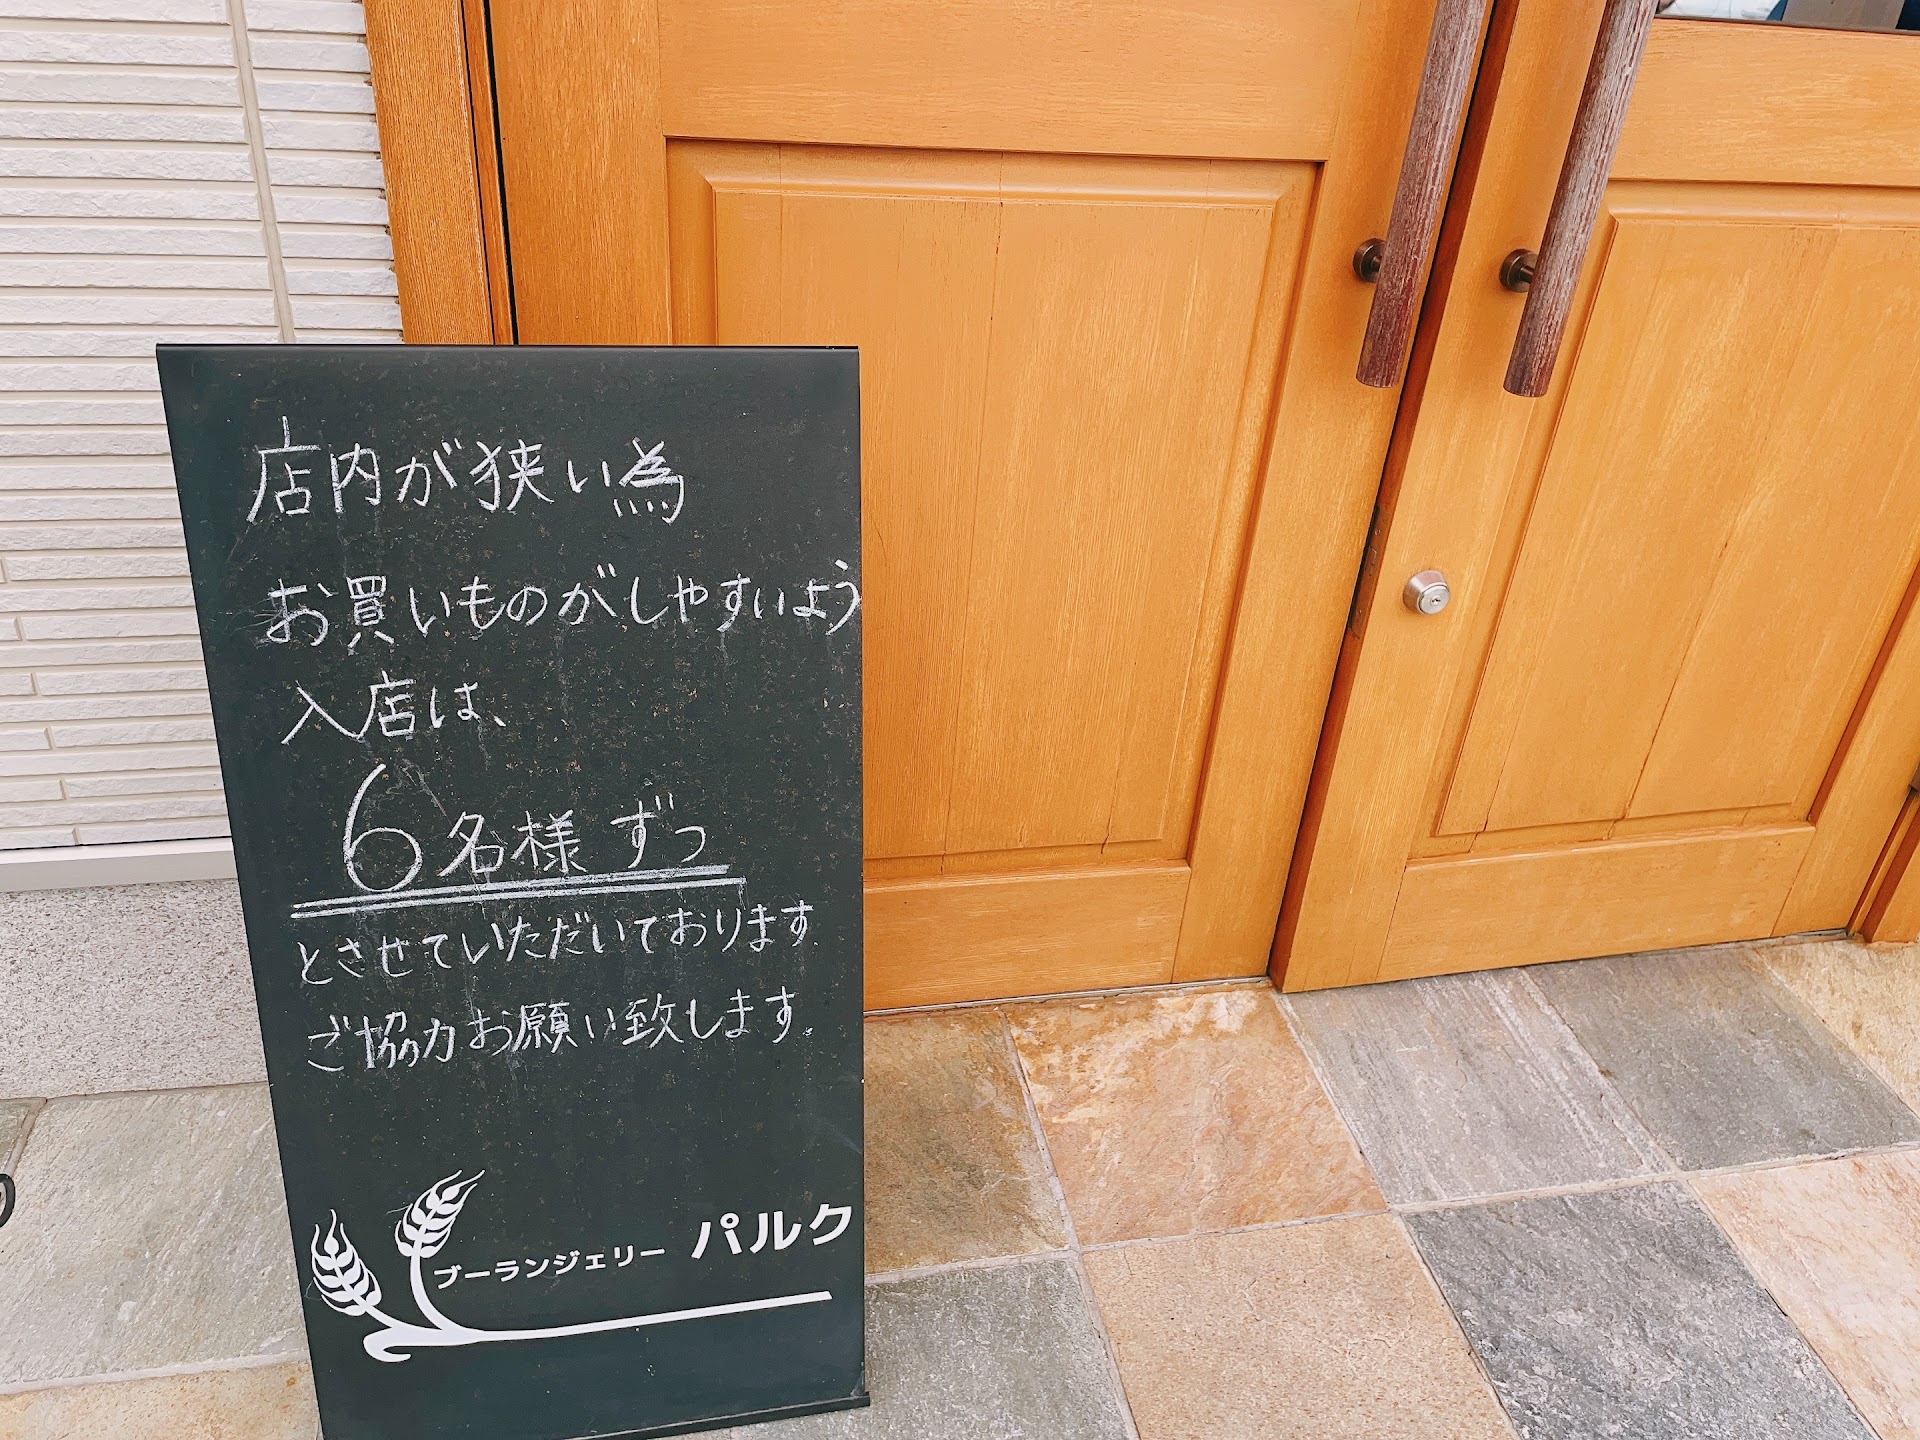 店内が狭い為
お買いものがしやすいよう
入店は、
6名様ずつ
とさせていただいております
ご協力お願い致します
ブーランジェリー パルク